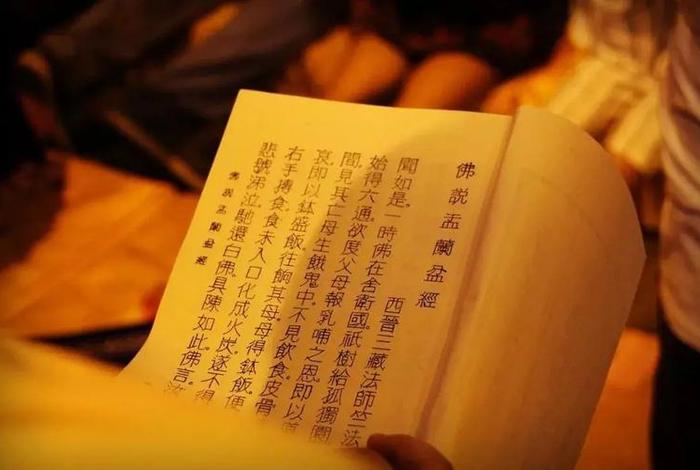 佛說盂蘭盆經
西晉三藏法師竺法
聞如是。一時佛在舍衛國。祇樹給孤獨園
始得六通。欲度父母報乳哺之恩。即以
間。見其亡母生餓鬼中。不見飲食。皮骨
哀。即以鉢盛飯。往餉其母。母得鉢飯。便
右手摶食。食未入口。化成火炭。遂不得
悲號涕泣。馳還白佛。具陳如此。佛言。
佛說盂蘭盆經